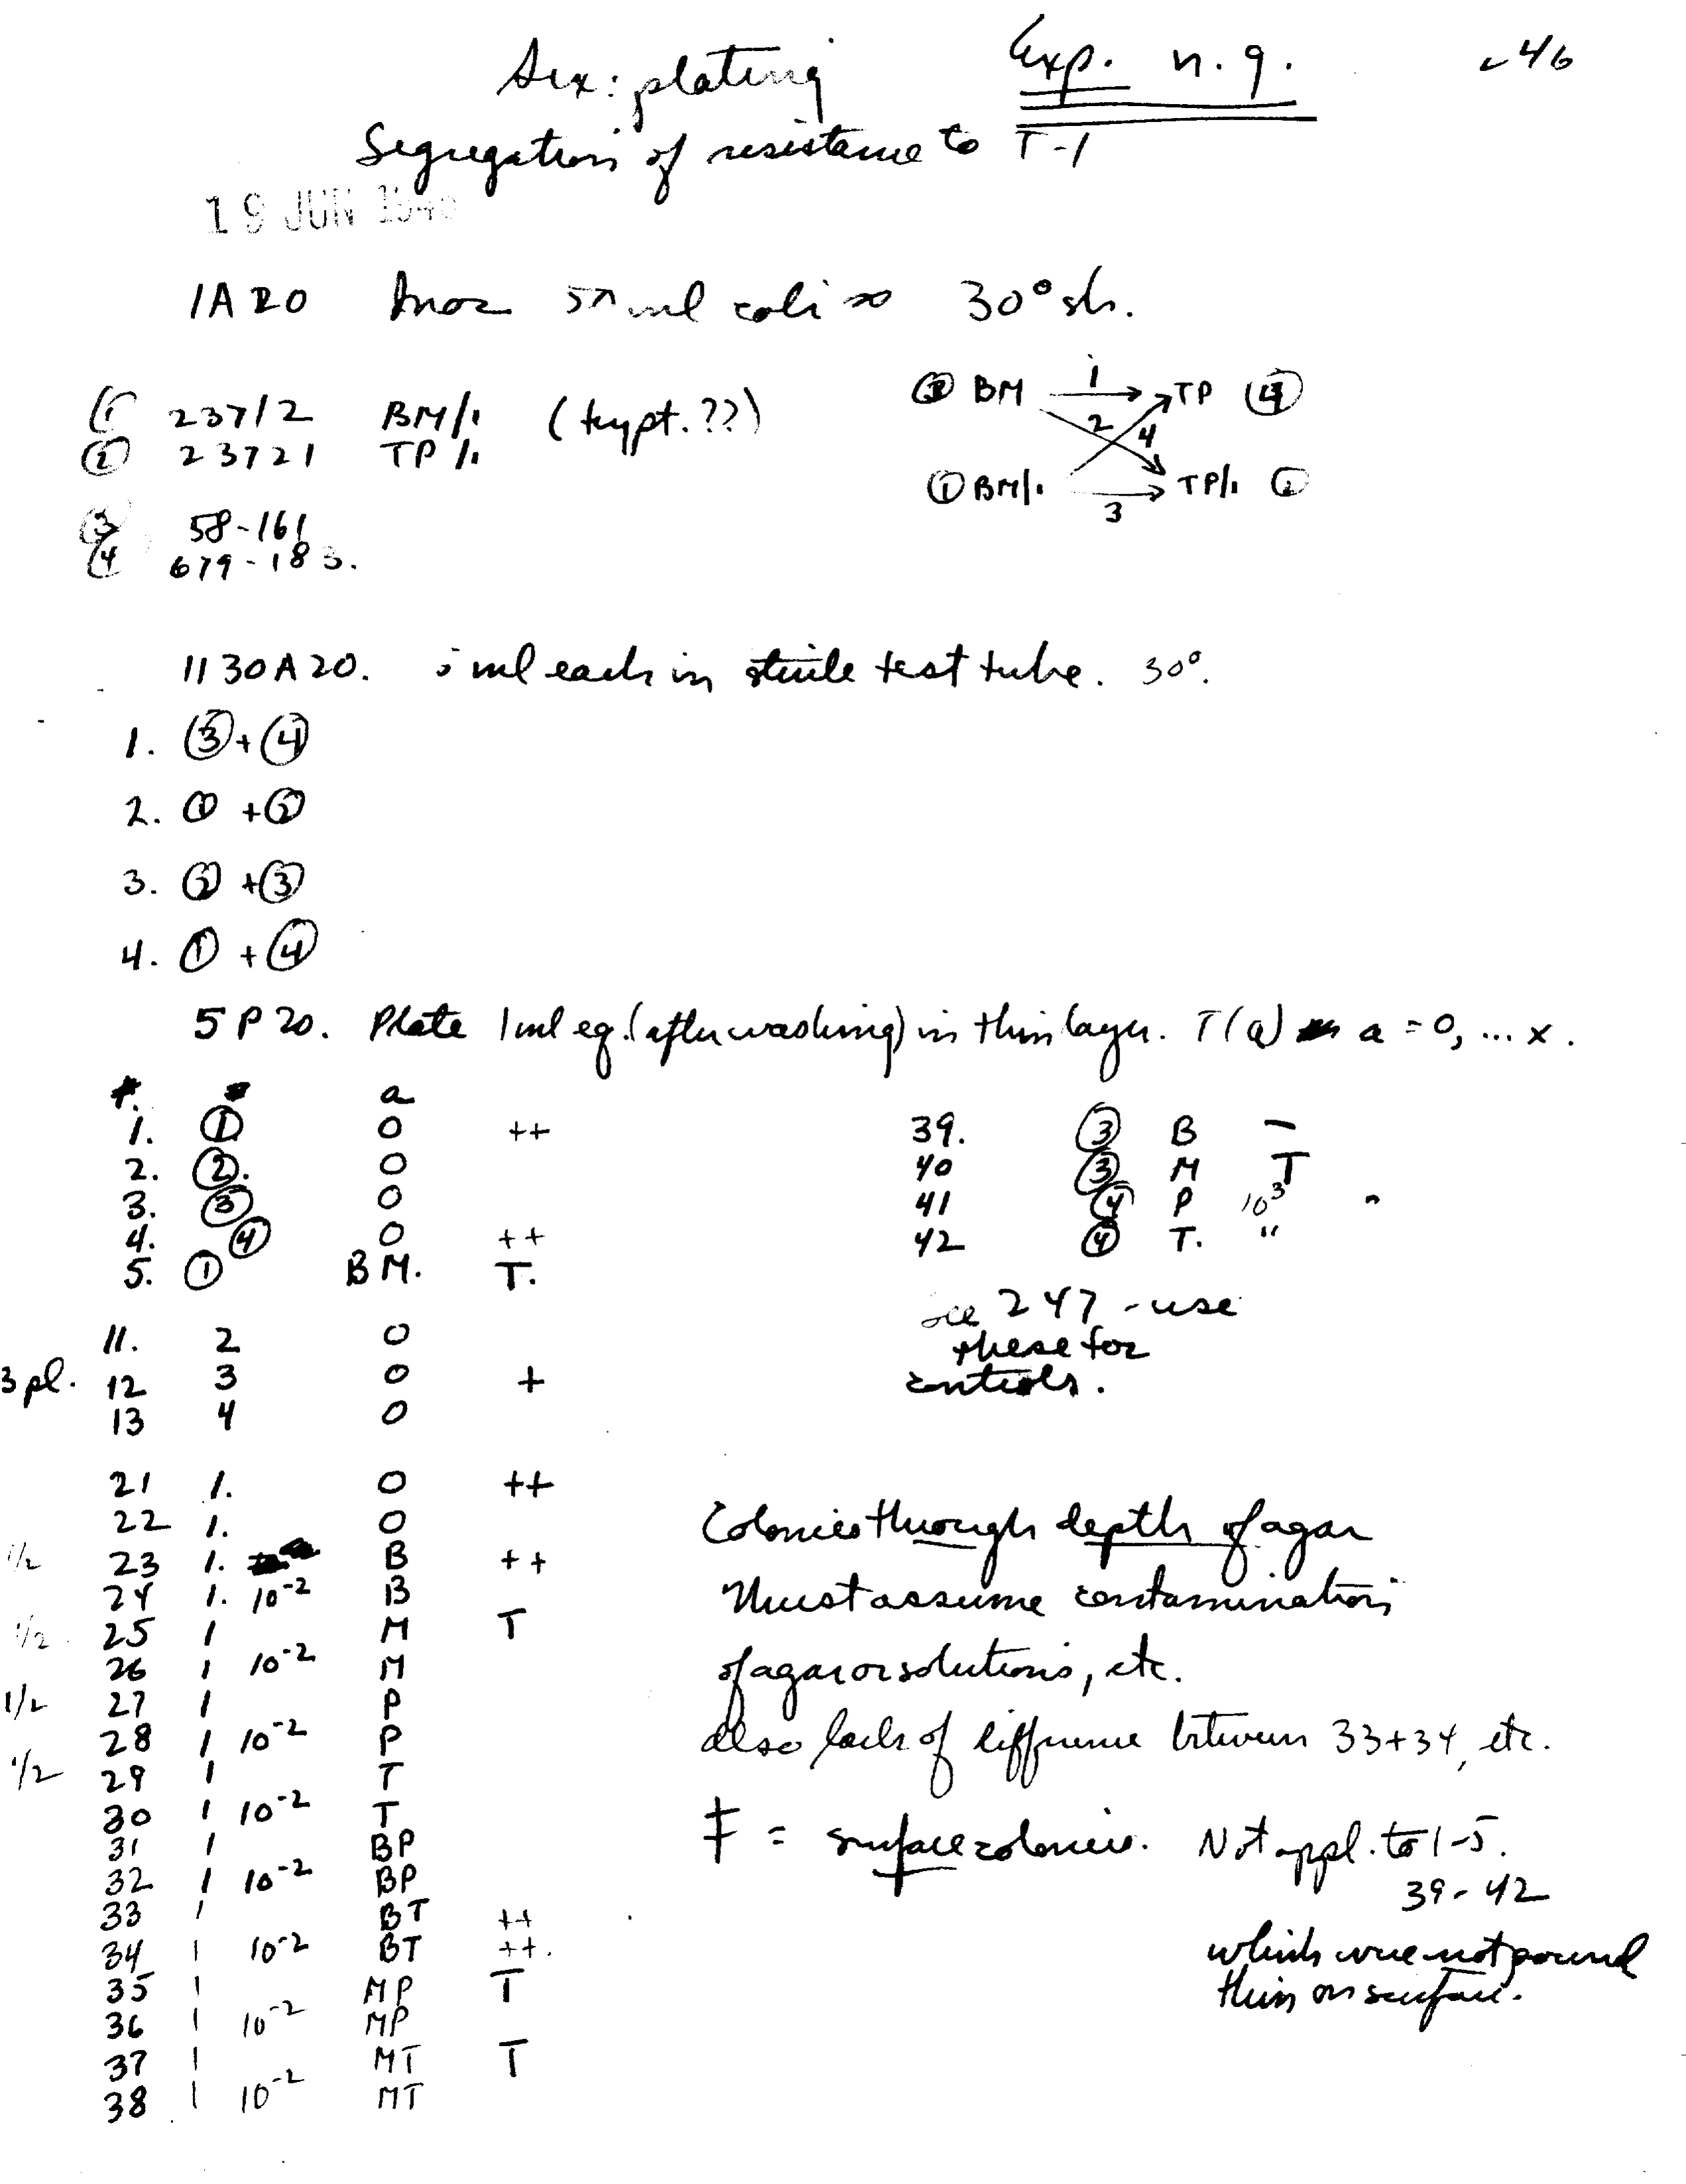 Sex: plating Exp. n.g. 46
Segregation of resistance to T-1
19 JUN 1946
1A20 Inoc 5 ml coli 30° sh.
① 23712 BM/1 (trypt.??)
② 23721 TP/1
③ 58-161
④ 679-183.
③ BM 1 TP ④
2 4
① BM/1 3 TP/1 ②
1130A20. 5 ml each in sterile test tube. 30°.
1. ③+④
2. ① +②
3. ② +③
4. ① +④
5P20. Plate 1 ml eq. (after washing) in thin layer. T(a) a = 0, ... x.
#. a
1. ① 0 ++
2. ②. 0
3. ③ 0
4. ④ 0 ++
5. ① BM. T.
11. 2 0
3 pl. 12 3 0 +
13 4 0
21 1. 0 ++
22 1. 0
1/2 23 1. B ++
24 1. 10-2 B
1/2 25 1 M T
26 1 10-2 M
1/2 27 1 P
28 1 10-2 P
1/2 29 1 T
30 1 10-2 T
31 1 BP
32 1 10-2 BP
33 1 BT ++
34 1 10-2 BT ++.
35 1 MP T
36 1 10-2 MP
37 1 MT T
38 1 10-2 MT
39. ③ B –
40 ③ M T
41 ④ P 10³
42 ④ T. "
see 247 - use
these for
controls.
Colonies through depth of agar
Must assume contamination
of agar or solutions, etc.
also lack of difference between 33+34, etc.
‡ = surface colonies. Not appl. to 1-5.
39-42
which were not poured
thin on surface.